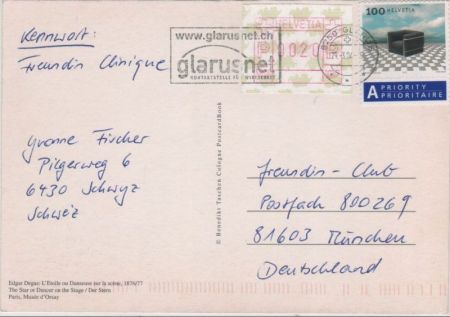 Kennwort:
Freundin Clinique
Yvonne Fischer
Pilgerweg 6
6430 Schwyz
Schweiz
www.glarusnet.ch
glarusnet
HELVETIA
0020
100 HELVETIA
A PRIORITY
PRIORITAIRE
Freundin-Club
Postfach 800269
81603 München
Deutschland
© Benedikt Taschen Cologne PostcardBook
Edgar Degas: L'Etoile ou Danseuse sur la scène, 1876/77
The Star or Dancer on the Stage / Der Stern
Paris, Musée d'Orsay